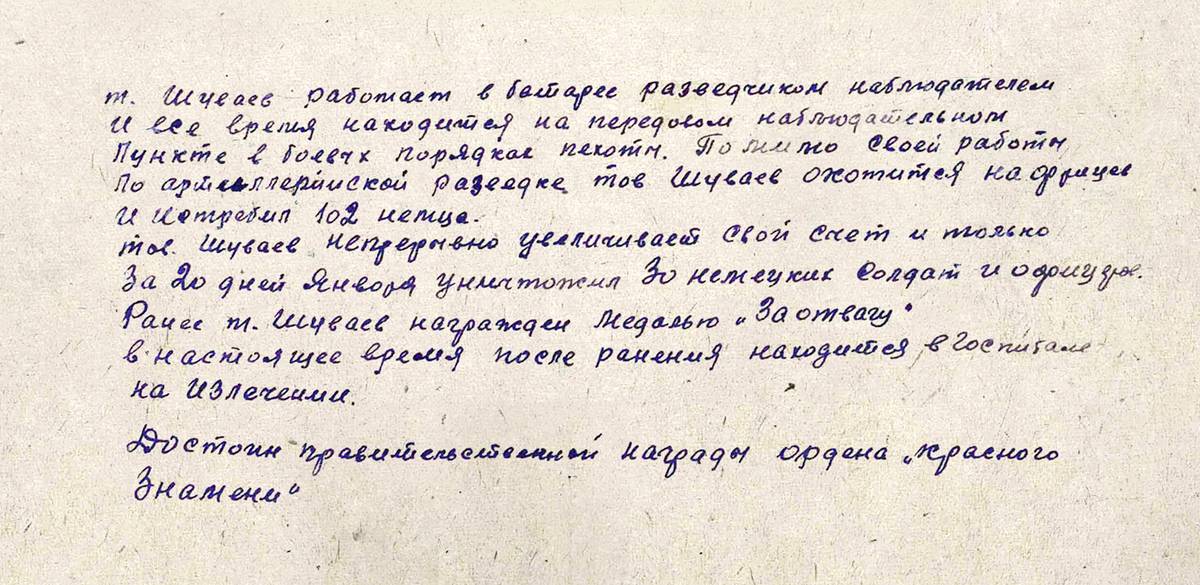 т. Шуваев работает в батарее разведчиком наблюдателем
И все время находится на передовом наблюдательном
Пункте в боевых порядках пехоты. Помимо своей работы
По артиллерийской разведке тов Шуваев охотится на фрицев
И истребил 102 немца.
тов. Шуваев непрерывно увеличивает свой счет и только
За 20 дней Января уничтожил 30 немецких солдат и офицеров.
Ранее т. Шуваев награжден медалью „За отвагу"
в настоящее время после ранения находится в Госпитале
на излечении.
Достоин правительственной награды ордена „Красного
Знамени"